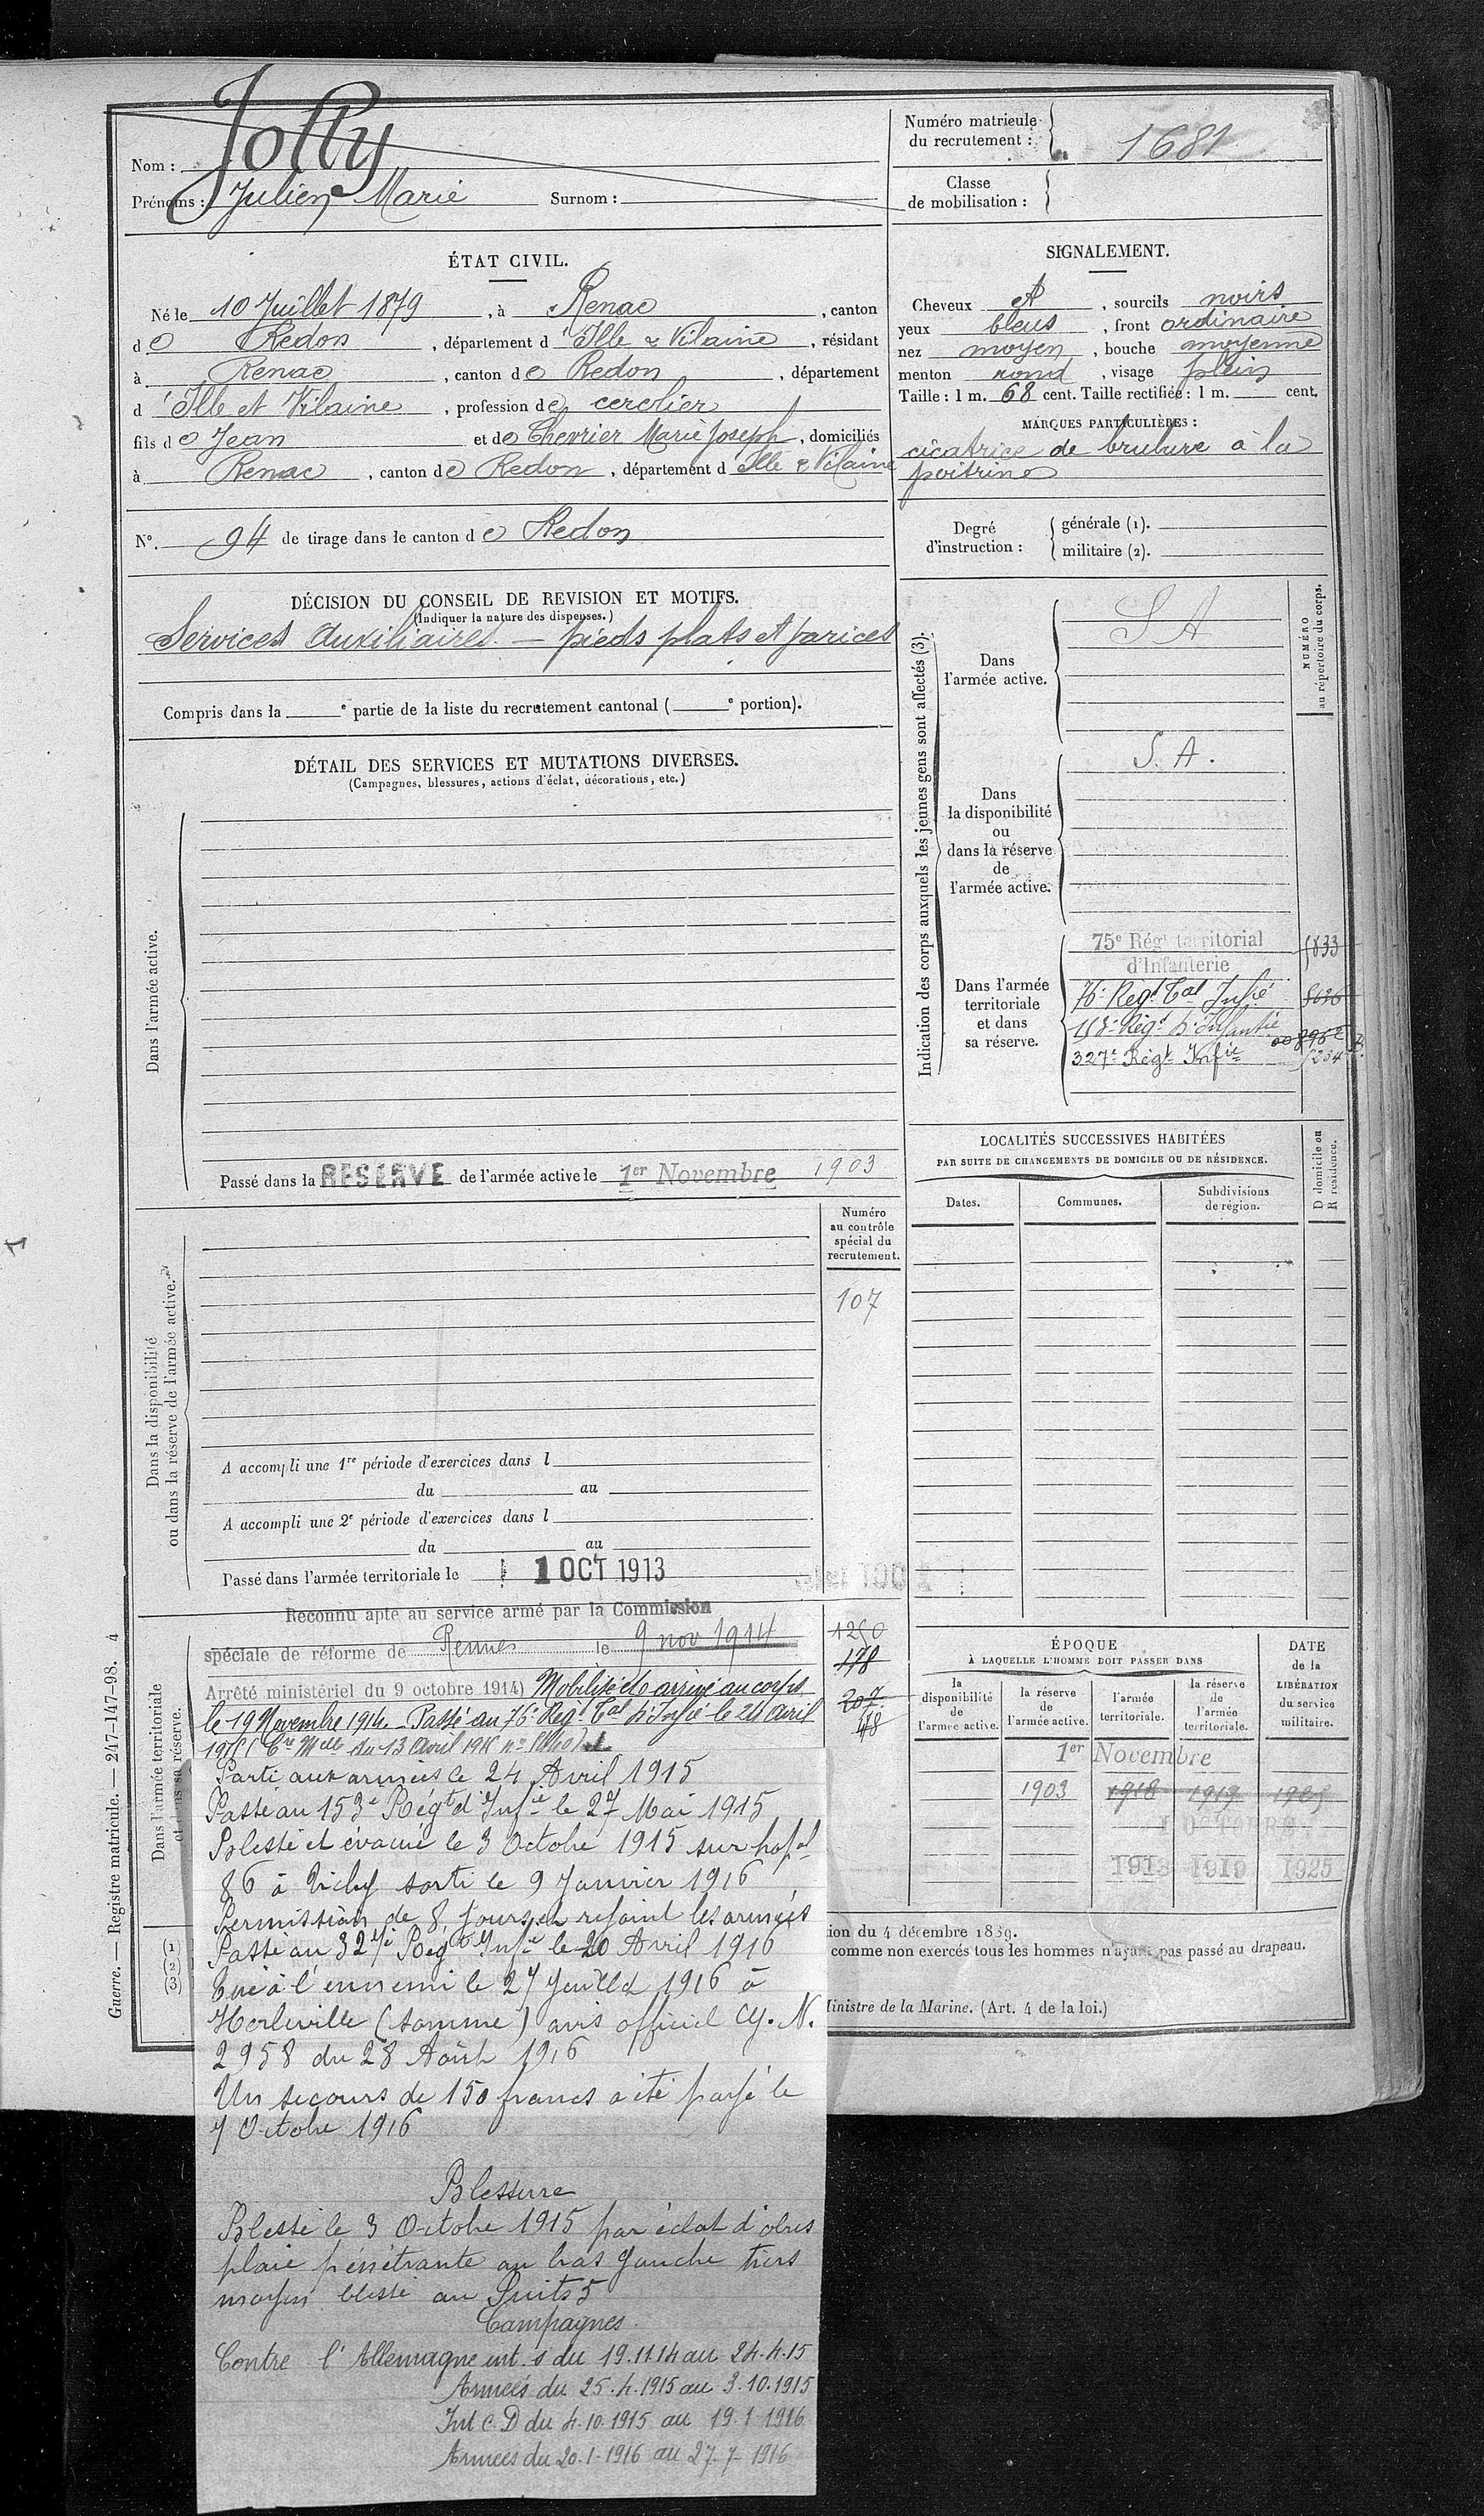 Nom : Jolly
Prénoms : Julien Marie Surnom :
Numéro matricule du recrutement : 1681
Classe de mobilisation :
ÉTAT CIVIL.
Né le 10 Juillet 1879, à Renac, canton
de Redon, département d Ille & Vilaine, résidant
à Renac, canton de Redon, département
d'Ille et Vilaine, profession de cerclier
fils de Jean et de Chevrier Marie Joseph, domiciliés
à Renac, canton de Redon, département d Ille & Vilaine
N°. 94 de tirage dans le canton de Redon
SIGNALEMENT.
Cheveux et, sourcils noirs
yeux bleus, front ordinaire
nez moyen, bouche moyenne
menton rond, visage plein
Taille : 1 m. 68 cent. Taille rectifiée : 1 m. cent.
MARQUES PARTICULIÈRES :
cicatrice de brulure à la
poitrine
Degré d'instruction : générale (1).
militaire (2).
DÉCISION DU CONSEIL DE REVISION ET MOTIFS.
(Indiquer la nature des dispenses.)
Services Auxiliaires. — pieds plats et varices
Compris dans la e partie de la liste du recrutement cantonal ( e portion).
DÉTAIL DES SERVICES ET MUTATIONS DIVERSES.
(Campagnes, blessures, actions d'éclat, décorations, etc.)
Dans l'armée active.
Passé dans la RESERVE de l'armée active le 1er Novembre 1903
Indication des corps auxquels les jeunes gens sont affectés (3).
NUMÉRO
au répertoire du corps.
Dans
l'armée active.
S A
Dans
la disponibilité
ou
dans la réserve
de
l'armée active.
S. A.
Dans l'armée
territoriale
et dans
sa réserve.
75e Régt territorial
d'Infanterie
5833
76e Régt Tal Infie
Régt d'Infantie
327e Régt Infie
LOCALITÉS SUCCESSIVES HABITÉES
PAR SUITE DE CHANGEMENTS DE DOMICILE OU DE RÉSIDENCE.
D domicile ou
R résidence.
Dates. Communes. Subdivisions
de région.
Dans la disponibilité
ou dans la réserve de l'armée active.
Numéro
au contrôle
spécial du
recrutement.
107
A accompli une 1re période d'exercices dans l
du au
A accompli une 2e période d'exercices dans l
du au
Passé dans l'armée territoriale le 1 OCT 1913
Dans l'armée territoriale
et dans sa réserve.
Reconnu apte au service armé par la Commission
spéciale de réforme de Rennes le 9 nov 1914
Arrêté ministériel du 9 octobre 1914) Mobilisé et arrivé au corps
le 19 Novembre 1914. Passé au 76e Régt Tal d'Infie le 24 avril
1915 Cre Melle du 13 Avril 1915
1250
178
207
48
Parti aux armées le 24 Avril 1915
Passé au 153e Régt d'Infie le 27 Mai 1915
Blessé et évacué le 3 Octobre 1915 sur hopal
86 à Vichy sorti le 9 Janvier 1916
Permission de 8 jours et rejoint les armées
Passé au 327e Régt Infie le 20 Avril 1916
Tué à l'ennemi le 27 Juillet 1916 à
Herleville (Somme) avis officiel Cy. N.
2958 du 28 Août 1916
Un secours de 150 francs a été payé le
7 Octobre 1916
Blessure
Blessé le 3 Octobre 1915 par éclat d'obus
plaie pénétrante au bras gauche tiers
moyen blessé au Puits 5
Campagnes
Contre l'Allemagne int. s du 19.11.14 au 24.4.15
Armées du 25.4.1915 au 3.10.1915
Int C.D du 4.10.1915 au 19.1.1916
Armées du 20.1.1916 au 27.7.1916
ÉPOQUE
À LAQUELLE L'HOMME DOIT PASSER DANS
DATE
de la
LIBÉRATION
du service
militaire.
la
disponibilité
de
l'armée active.
la réserve
de
l'armée active.
l'armée
territoriale.
la réserve
de
l'armée
territoriale.
1er Novembre
1903 1918 1919
1 OCTOBRE
1913 1919 1925
(1)
(2)
(3)
tion du 4 décembre 1889.
comme non exercés tous les hommes n'ayant pas passé au drapeau.
Ministre de la Marine. (Art. 4 de la loi.)
Guerre. — Registre matricule. — 247-147-98. 4